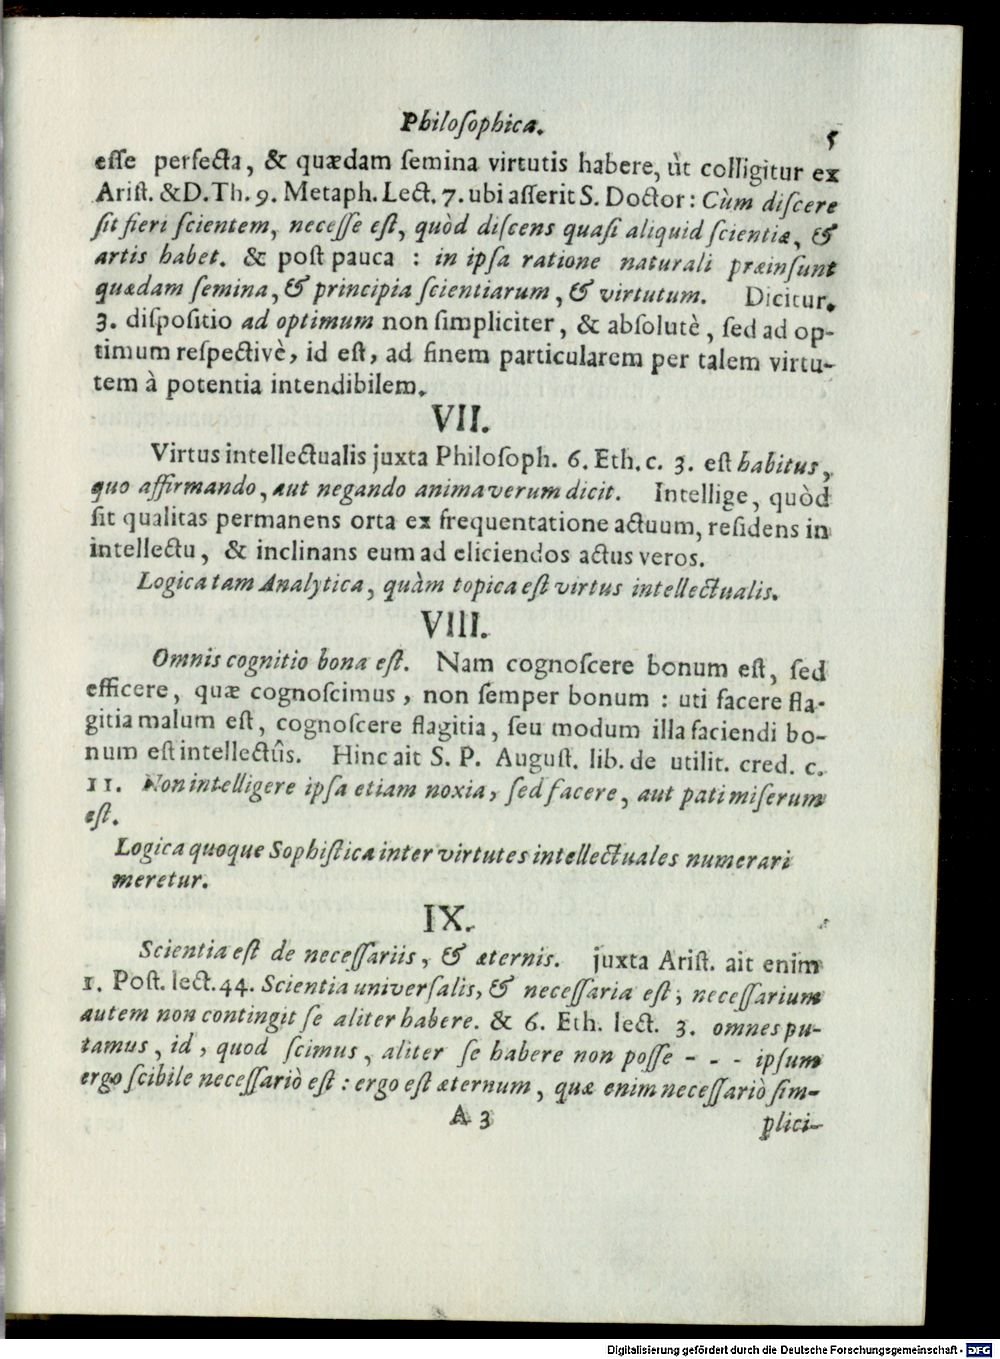 Philoſophica.
5
eſſe perfecta, & quædam ſemina virtutis habere, ùt colligitur ex
Ariſt. & D. Th. 9. Metaph. Lect. 7. ubi aſſerit S. Doctor: Cùm diſcere
ſit fieri ſcientem, neceſſe eſt, quòd diſcens quaſi aliquid ſcientiæ, &
artis habet. & poſt pauca : in ipſa ratione naturali præinſunt
quædam ſemina, & principia ſcientiarum, & virtutum. Dicitur.
3. diſpoſitio ad optimum non ſimpliciter, & abſolutè, ſed ad op-
timum reſpectivè, id eſt, ad finem particularem per talem virtu-
tem à potentia intendibilem.
VII.
Virtus intellectualis juxta Philoſoph. 6. Eth. c. 3. eſt habitus,
quo affirmando, aut negando anima verum dicit. Intellige, quòd
ſit qualitas permanens orta ex frequentatione actuum, reſidens in
intellectu, & inclinans eum ad eliciendos actus veros.
Logica tam Analytica, quàm topica eſt virtus intellectualis.
VIII.
Omnis cognitio bona eſt. Nam cognoſcere bonum eſt, ſed
efficere, quæ cognoſcimus, non ſemper bonum : uti facere fla-
gitia malum eſt, cognoſcere flagitia, ſeu modum illa faciendi bo-
num eſt intellectûs. Hinc ait S. P. Auguſt. lib. de utilit. cred. c.
11. Non intelligere ipſa etiam noxia, ſed facere, aut pati miſerum
eſt.
Logica quoque Sophiſtica inter virtutes intellectuales numerari
meretur.
IX.
Scientia eſt de neceſſariis, & æternis. juxta Ariſt. ait enim
1. Poſt. lect. 44. Scientia univerſalis, & neceſſaria eſt; neceſſarium
autem non contingit ſe aliter habere. & 6. Eth. lect. 3. omnes pu-
tamus, id, quod ſcimus, aliter ſe habere non poſſe - - - ipſum
ergo ſcibile neceſſariò eſt : ergo eſt æternum, quæ enim neceſſariò ſim-
A 3
plici-
Digitalisierung gefördert durch die Deutsche Forschungsgemeinschaft - DFG